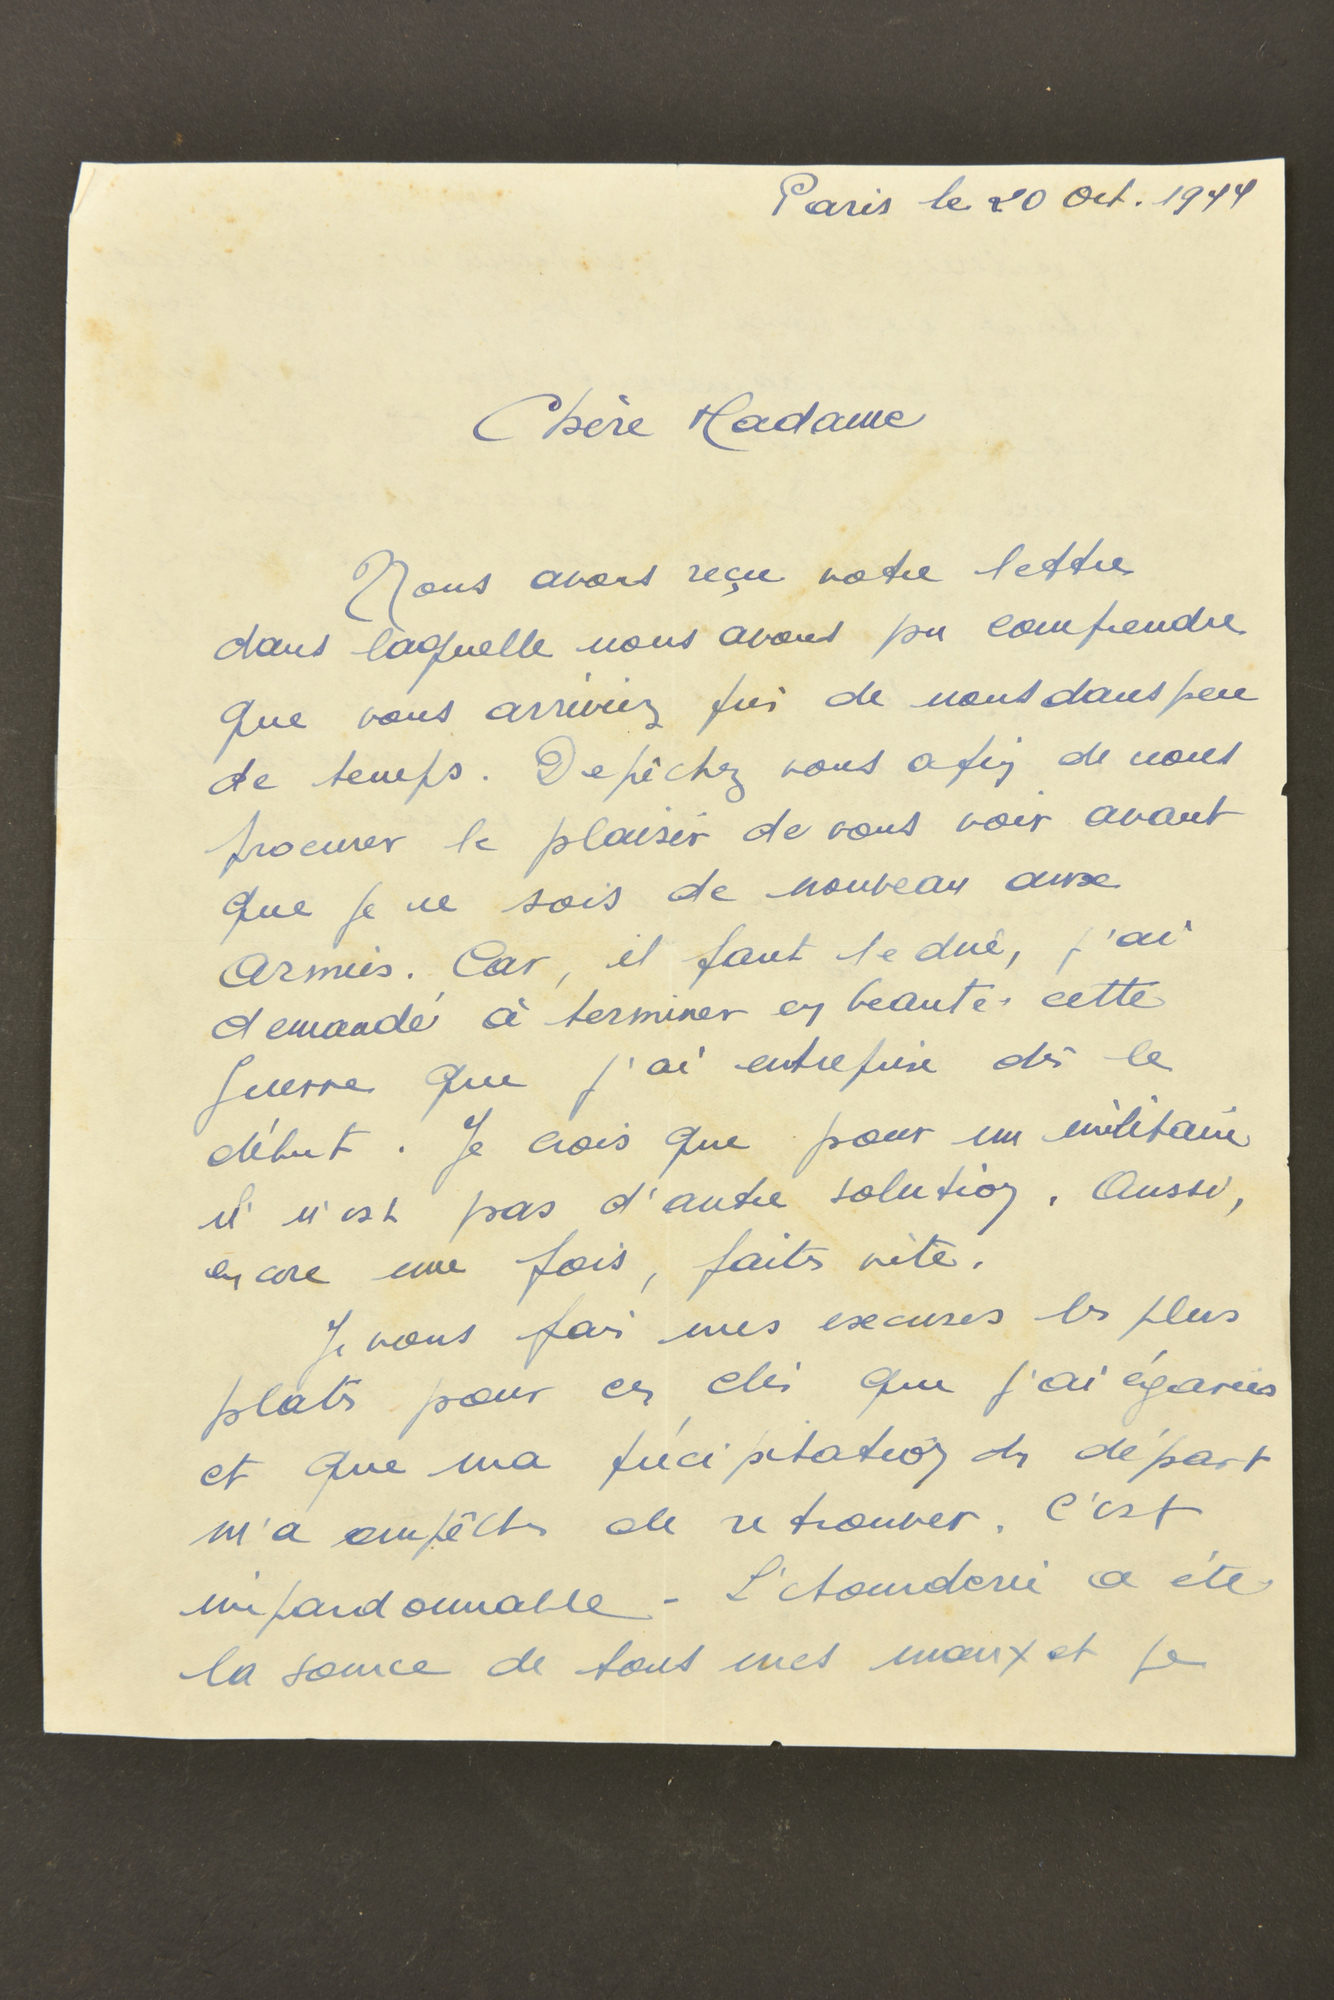 Paris le 20 Oct. 1944
Chère Madame
Nous avons reçu votre lettre
dans laquelle nous avons pu comprendre
que vous arriviez près de nous dans peu
de temps. Depêchez vous afin de nous
procurer le plaisir de vous voir avant
que je ne sois de nouveau aux
Armées. Car, il faut le dire, j'ai
demandé à terminer en beauté cette
guerre que j'ai entreprise dès le
début. Je crois que pour un militaire
il n'est pas d'autre solution. Aussi,
encore une fois, faites vite.
Je vous fais mes excuses les plus
plates pour ces clés que j'ai égarées
et que ma précipitation de départ
m'a empêché de retrouver. C'est
impardonnable - L'étourderie a été
la source de tous mes maux et je